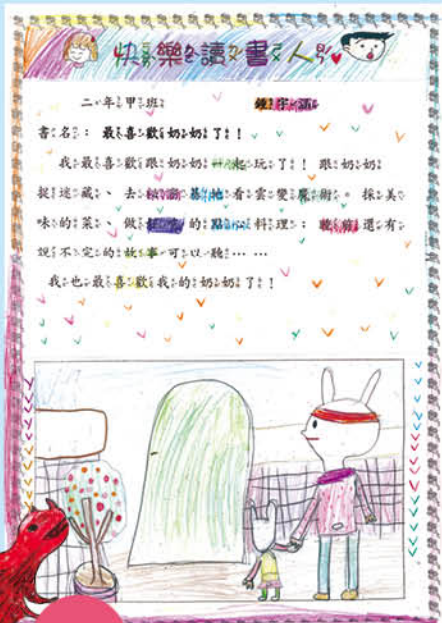 快樂讀書人
二年甲班 鍾宇涵
書名: 最喜歡奶奶了!
我最喜歡跟奶奶一起玩了! 跟奶奶
捉迷藏、去秘密基地看雲變魔術。採美
味的菜、做 的點心料理; 晚 還有
說不完的故事可以聽……
我也最喜歡我的奶奶了!